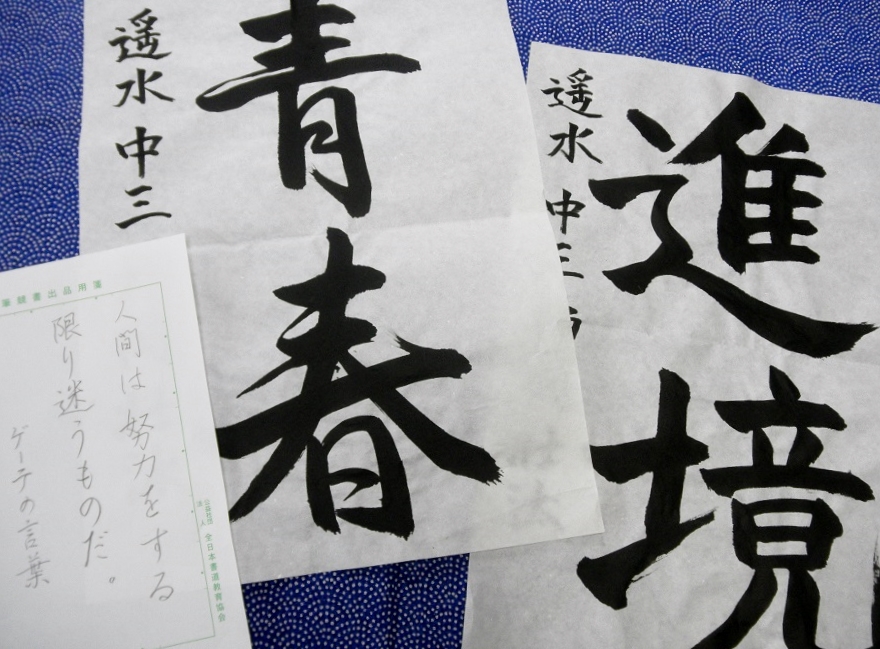 青春
遥水 中三
進境
遥水 中三
硬筆書出品用箋
人間は努力をする
限り迷うものだ。
ゲーテの言葉
公益社団法人 全日本書道教育協会